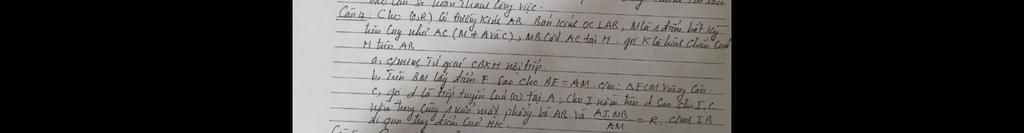 sẽ hoàn thành công việc.
Câu 4. Cho (O,R) có đường kính AB. Bán kính OC ⊥ AB, M là 1 điểm bất kỳ
trên cung nhỏ AC (M ≠ A và C), MB cắt AC tại H. gọi K là hình chiếu của
H trên AB
a, c/minh Tứ giác CBKH nội tiếp.
b, Trên BM lấy điểm E sao cho BE = AM c/m: ΔECM vuông cân.
c, gọi d là tiếp tuyến của (O) tại A, cho I nằm trên d sao cho I, C
nằm trong cùng 1 nửa mặt phẳng bờ AB và AI.MB/AM = R. c/m IB
đi qua trung điểm của HK.